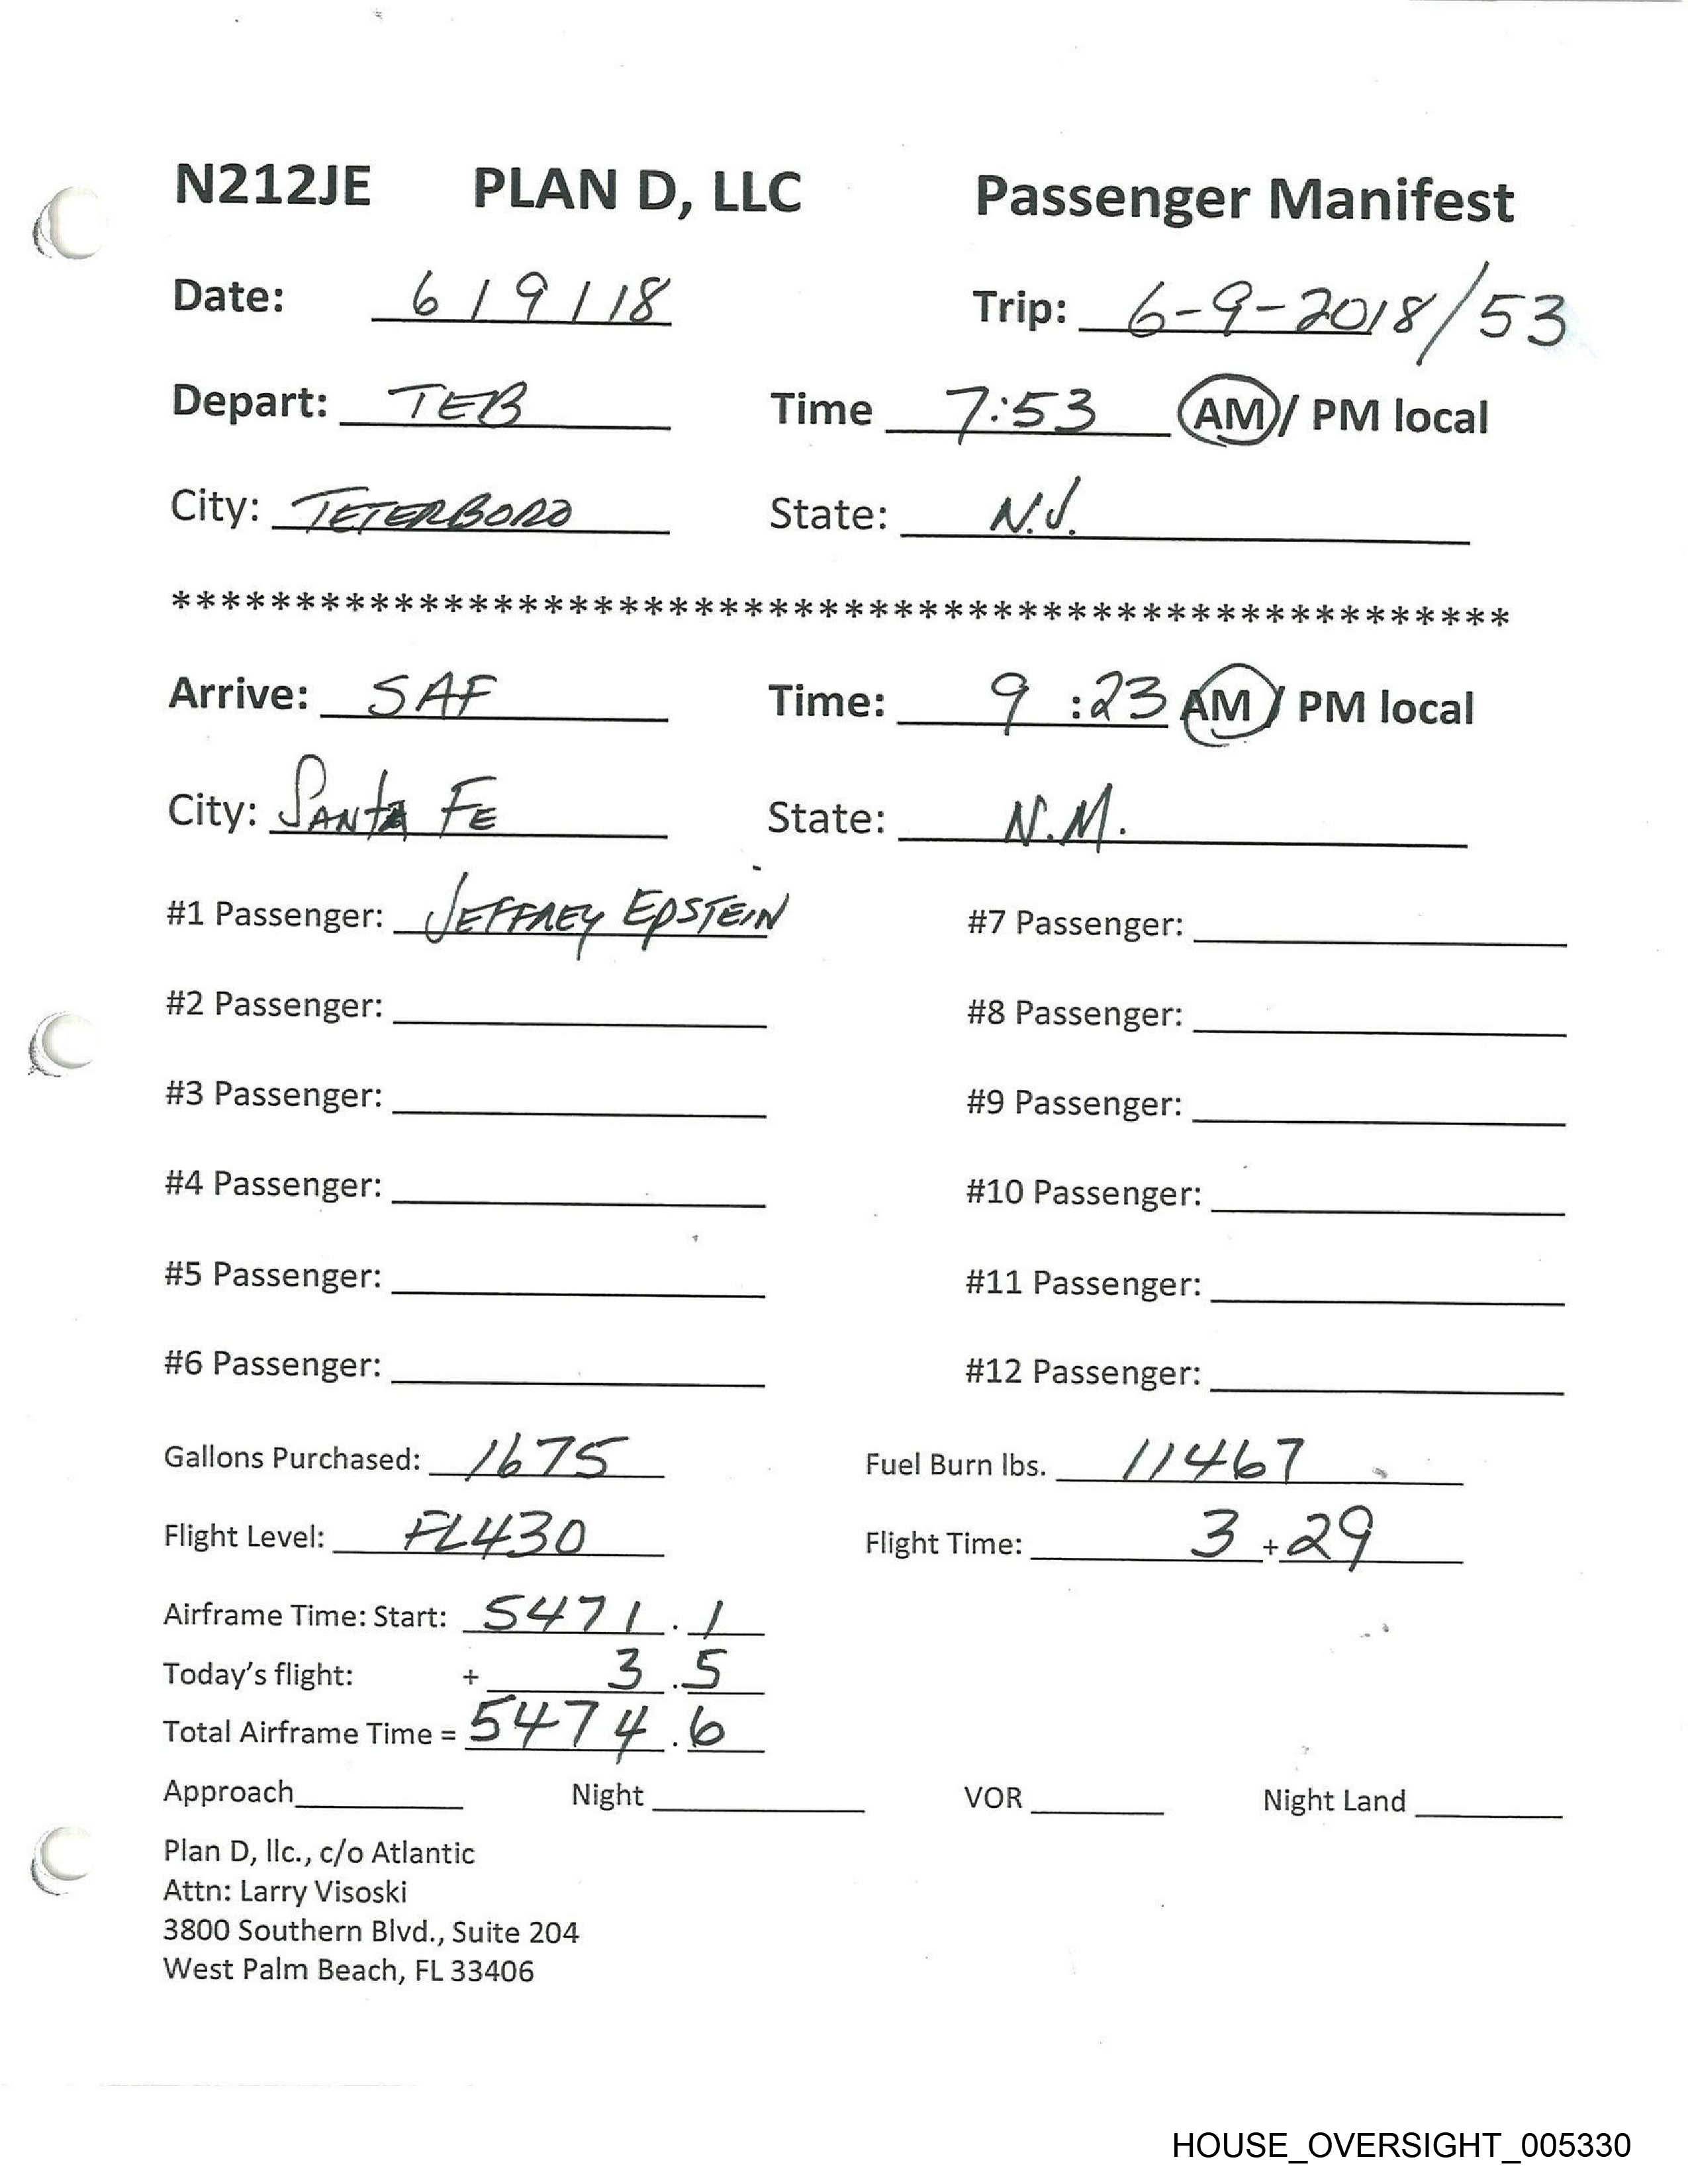 N212JE PLAN D, LLC Passenger Manifest
Date: 6/9/18 Trip: 6-9-2018/53
Depart: TEB Time 7:53 AM/ PM local
City: TETERBORO State: N.J.
******************************************************
Arrive: SAF Time: 9:23 AM/ PM local
City: SANTA FE State: N.M.
#1 Passenger: JEFFREY EPSTEIN #7 Passenger:
#2 Passenger: #8 Passenger:
#3 Passenger: #9 Passenger:
#4 Passenger: #10 Passenger:
#5 Passenger: #11 Passenger:
#6 Passenger: #12 Passenger:
Gallons Purchased: 1675 Fuel Burn lbs. 11467
Flight Level: FL430 Flight Time: 3 + 29
Airframe Time: Start: 5471.1
Today's flight: + 3.5
Total Airframe Time = 5474.6
Approach Night VOR Night Land
Plan D, llc., c/o Atlantic
Attn: Larry Visoski
3800 Southern Blvd., Suite 204
West Palm Beach, FL 33406
HOUSE_OVERSIGHT_005330